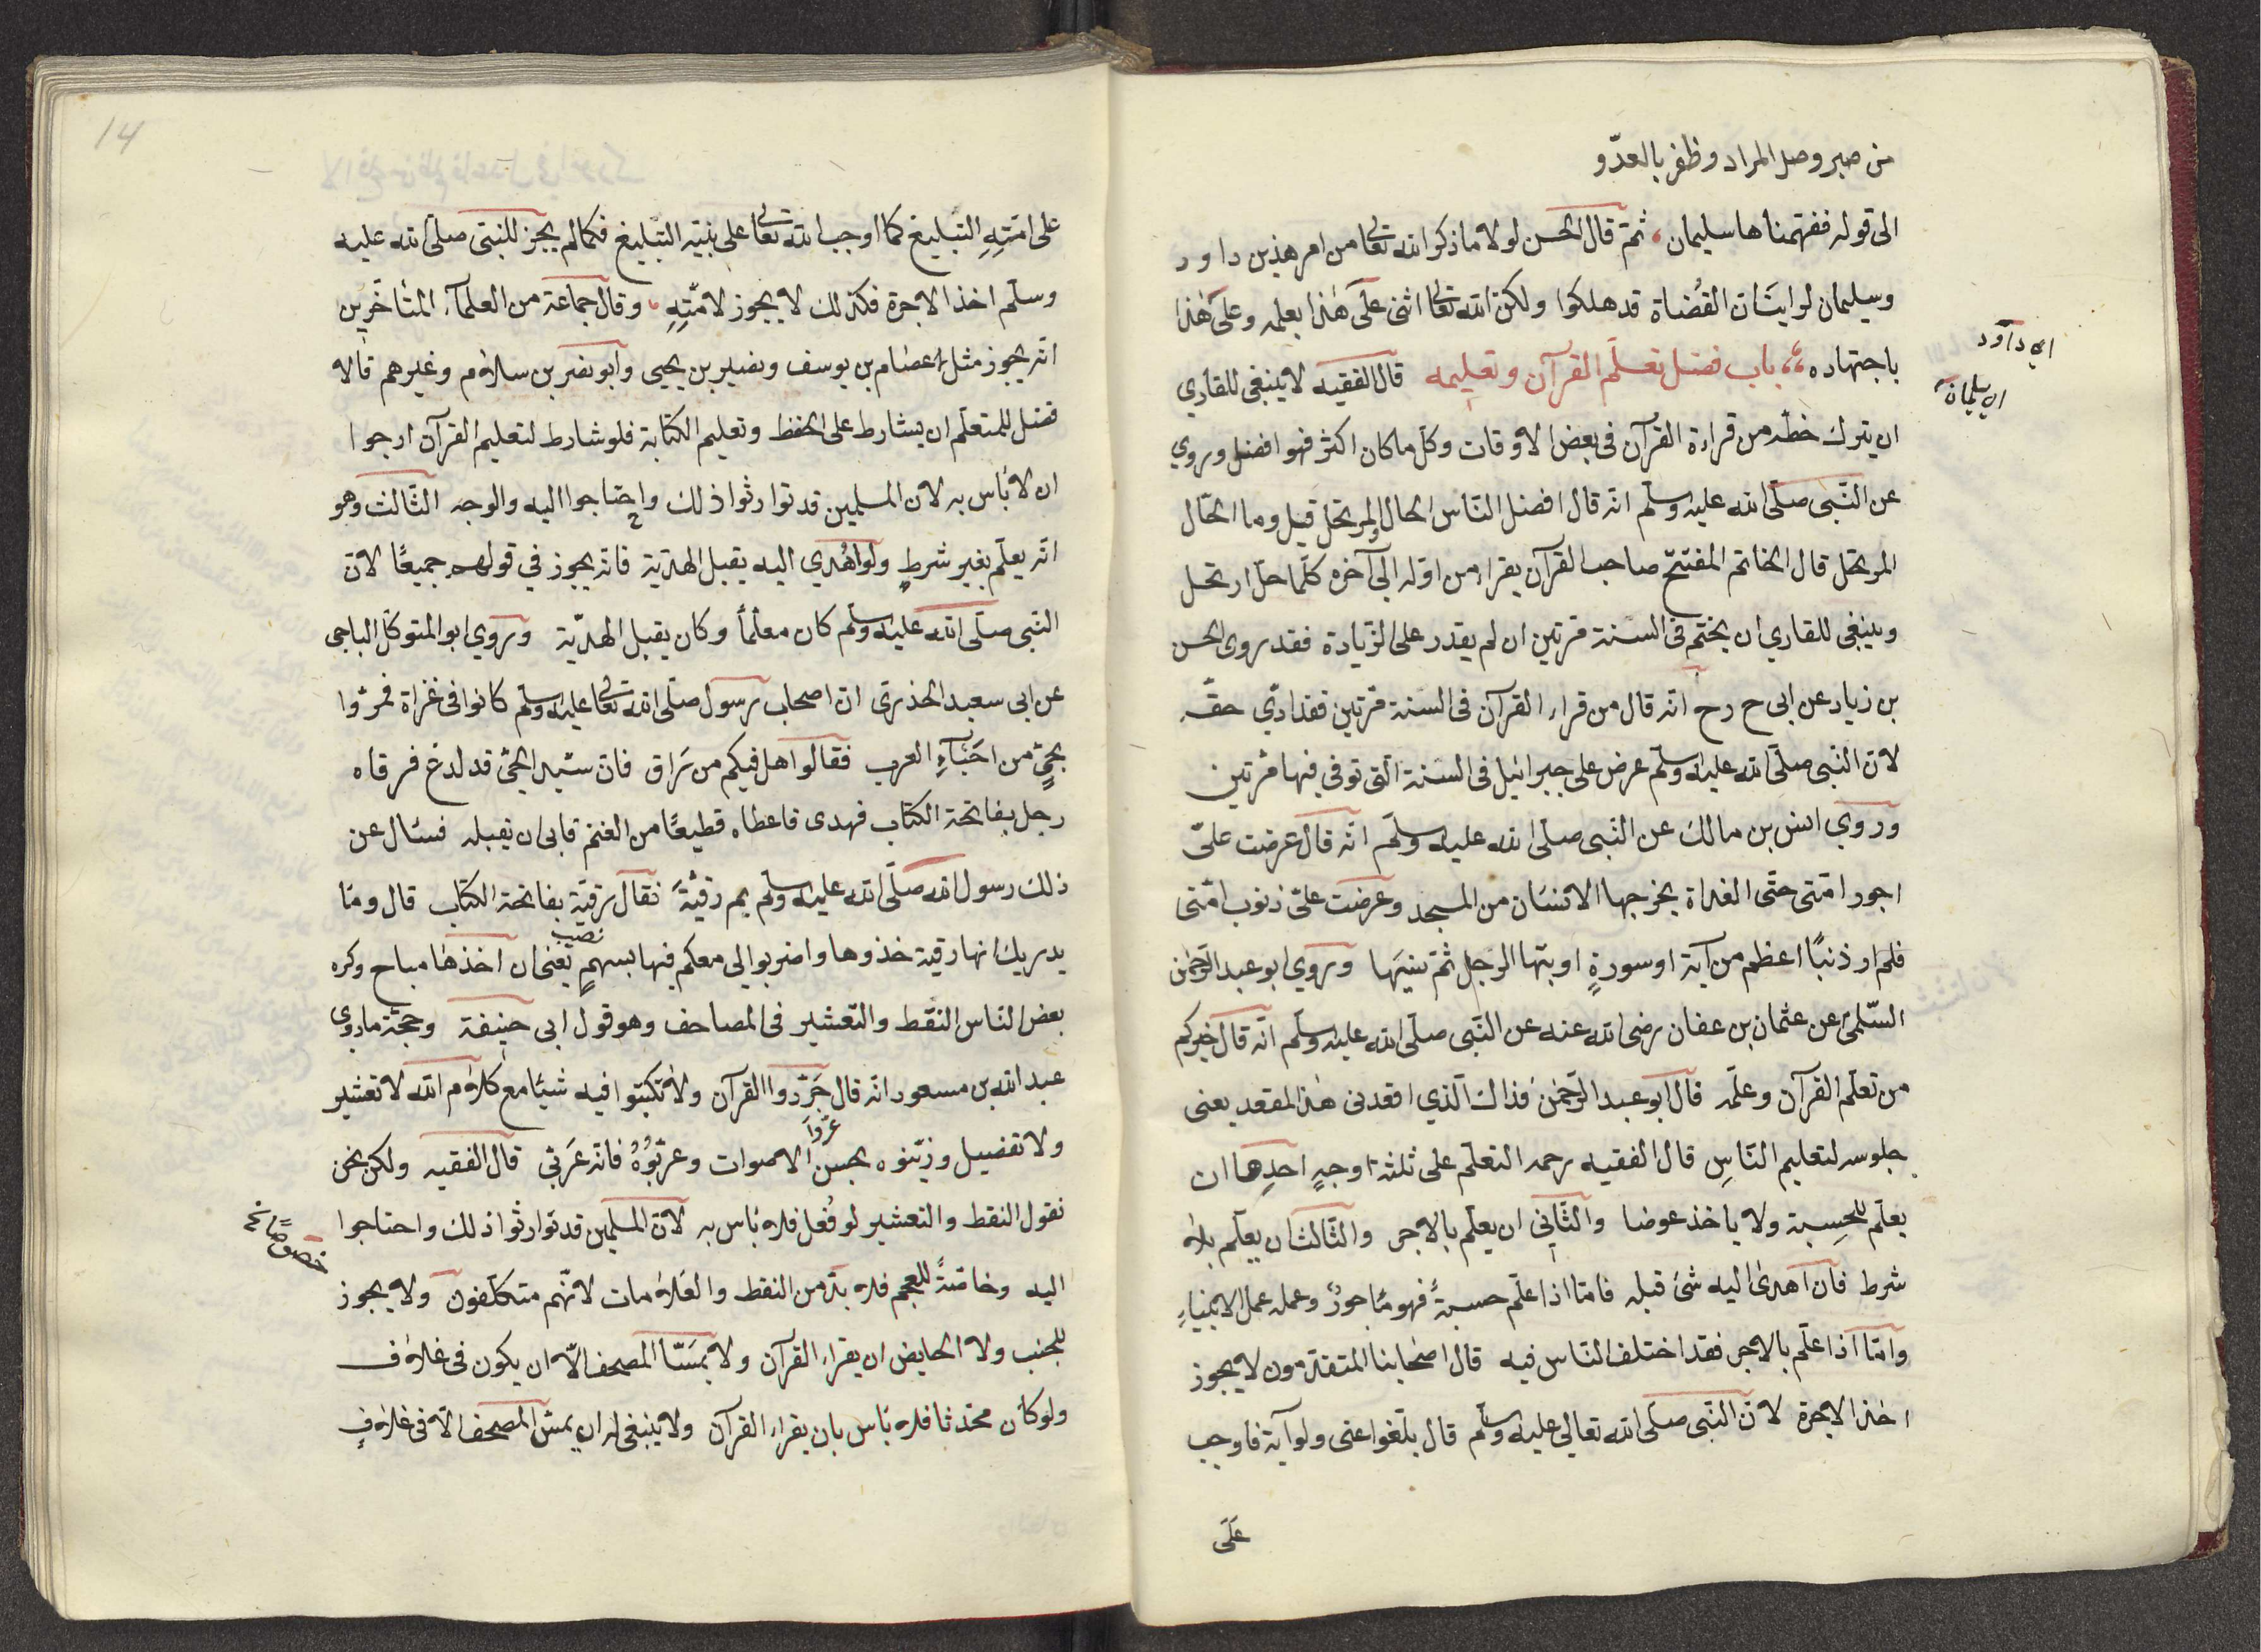 من صبر وصل المراد وظفر بالعدّو
الى قوله ففهّمناها سليمان ثمّ قال الحسن لولا ما ذكر الله تعالى من امر هذين داود
وسليمان لرايت ان القُضاة قد هلكوا ولكن الله تعالى اثنى على هٰذا بعلمه وعلى هٰذا
اي داود
اي سليمان
باجتهاده باب فضل تعلّم القرآن وتعليمه قال الفقيه لا ينبغى للقاري
ان يترك حظّه من قراءة القرآن فى بعض الاوقات وكل ما كان اكثر فهو افضل وروي
عن النّبى صلّى الله عليه وسلّم انّه قال افضل النّاس الحال والمرتحل قيل وما الحّال
المرتحل قال الخاتم المفتتح صاحب القرآن يقراء من اوّله الى آخره كلّما حلّ ارتحل
وينبغى للقاري ان يختم فى السّنة مرّتين ان لم يقدر على الزّيادة فقد روى الحسن
بن زياد عن ابى ح رح انّه قال من قراء القرآن فى السّنة مرّتين فقد ادّي حقّه
لانّ النّبى صلّى الله عليه وسلّم عرض على جبرائيل فى السّنة الّتى توفي فيها مرّتين
وروي انس بن مالك عن النّبى صلّى الله عليه وسلّم انّه قال عرضت علىّ
اجور امّتى حتّى القذاة يخرجها الانسان من المسجد وعرضت علىّ ذنوب امّتى
فلم ار ذنبًا اعظم من آية او سورةٍ اوتيها الرّجل ثمّ نسيَها وروي ابو عبد الرّحمٰن
السّلمىّ عن عثمان بن عفان رضى الله عنه عن النّبى صلّى الله عليه وسلّم انّه قال خيركم
من تعلّم القرآن وعلّمه قال ابو عبد الرّحمٰن فذاك الّذي اقعدنى هٰذا المقعد يعنى
جلوسه لتعليم النّاسِ قال الفقيه رحمه التعلّم على ثلثة اوجهٍ احدِها ان
يعلّم للحِسبة ولا ياخذ عوضا والثّاني ان يعلّم بالاجر والثّالث ان يعلّم بلا
شرط فان اهدىٰ اليه شئ قبله فامّا اذا علّم حسبةً فهو ماجورٌ وعمله عمل الانبياءِ
وامّا اذا علّم بالاجر فقد اختلف النّاس فيه قال اصحابنا المتقدّمون لا يجوز
اخذ الاجرة لانّ النّبى صلّى الله تعالى عليه وسلّم قال بلّغوا عنى ولو آية فاوجب
على
14
على امّتِهِ التّبليغ كما اوجب الله تعالى على نبيّه التّبليغ فكما لم يجز للنّبى صلّى الله عليه
وسلّم اخذ الاجرة فكذلك لا يجوز لامّتِهِ وقال جماعة من العلمآء المتأخّرين
انّه يجوز مثل اعصام بن يوسف ونصير بن يحيى وابو نصر بن سلام وغيرهم قالا
فضل للمتعلّم ان يشارط على الحفظ وتعليم الكتابة فلو شارط لتعليم القرآن ارجوا
ان لا بأس به لان المسلمين قد توارثوا ذلك واحتاجوا اليه والوجه الثّالث وهو
انّه يعلّم بغير شرطٍ ولو اُهدي اليه يقبل الهديّة فانّه يجوز في قولهم جميعًا لانّ
النّبى صلّى الله عليه وسلّم كان معلّماً وكان يقبل الهديّة وروي ابو المتوكّل الباجى
عن ابى سعيد الخذرىّ انّ اصحاب رسول صلّى الله تعالى عليه وسلّم كانوا فى غزاة فمرّوا
بحىٍّ من احيآءِ العرب فقالوا هل فيكم من رَاق فانّ سيّد الحىّ قد لدغ فرقاه
رجل بفاتحة الكتاب فهدى فاعطاه قطيعًا من الغنم فابى ان يقبله فسال عن
ذلك رسول الله صلّى الله عليه وسلّم بم رقيتَهُ فقال رقيته بفاتحة الكتاب قال وما
يدريك انها رقية خذوها واضربو الى معكم فيها بسهمٍ يعنى ان اخذها مباح وكره
نصيب
بعض النّاس النّقط والتّعشير فى المصاحف وهو قول ابى حنيفة وحجّته ما روى
عبد الله بن مسعود انّه قال جَرّدوا القرآن ولا تكتبوا فيه شيئا مع كلام الله لا تعشير
ولا تفضيل وزيّنوه بحسن الاصوات وعرّبُوُهُ فانّه عَربيّ قال الفقيه ولكن نحن
نقول النقط والتعشير لو فُعل فلا بأس به لانّ المسلمين قد توارثوا ذلك واحتاجوا
خصوصًا نخ
اليه وخاصّةً للعجم فلا بدّ من النقط والعَلامات لانّهم متكلّفون ولا يجوز
للجنب ولا الحايض ان يقراء القرآن ولا يمَسّا المصحف الّا ان يكون فى غلاف
ولو كان محدثا فلا بأس بان يقراء القرآن ولا ينبغى له ان يمسّ المصحف الّا فى غلافٍ